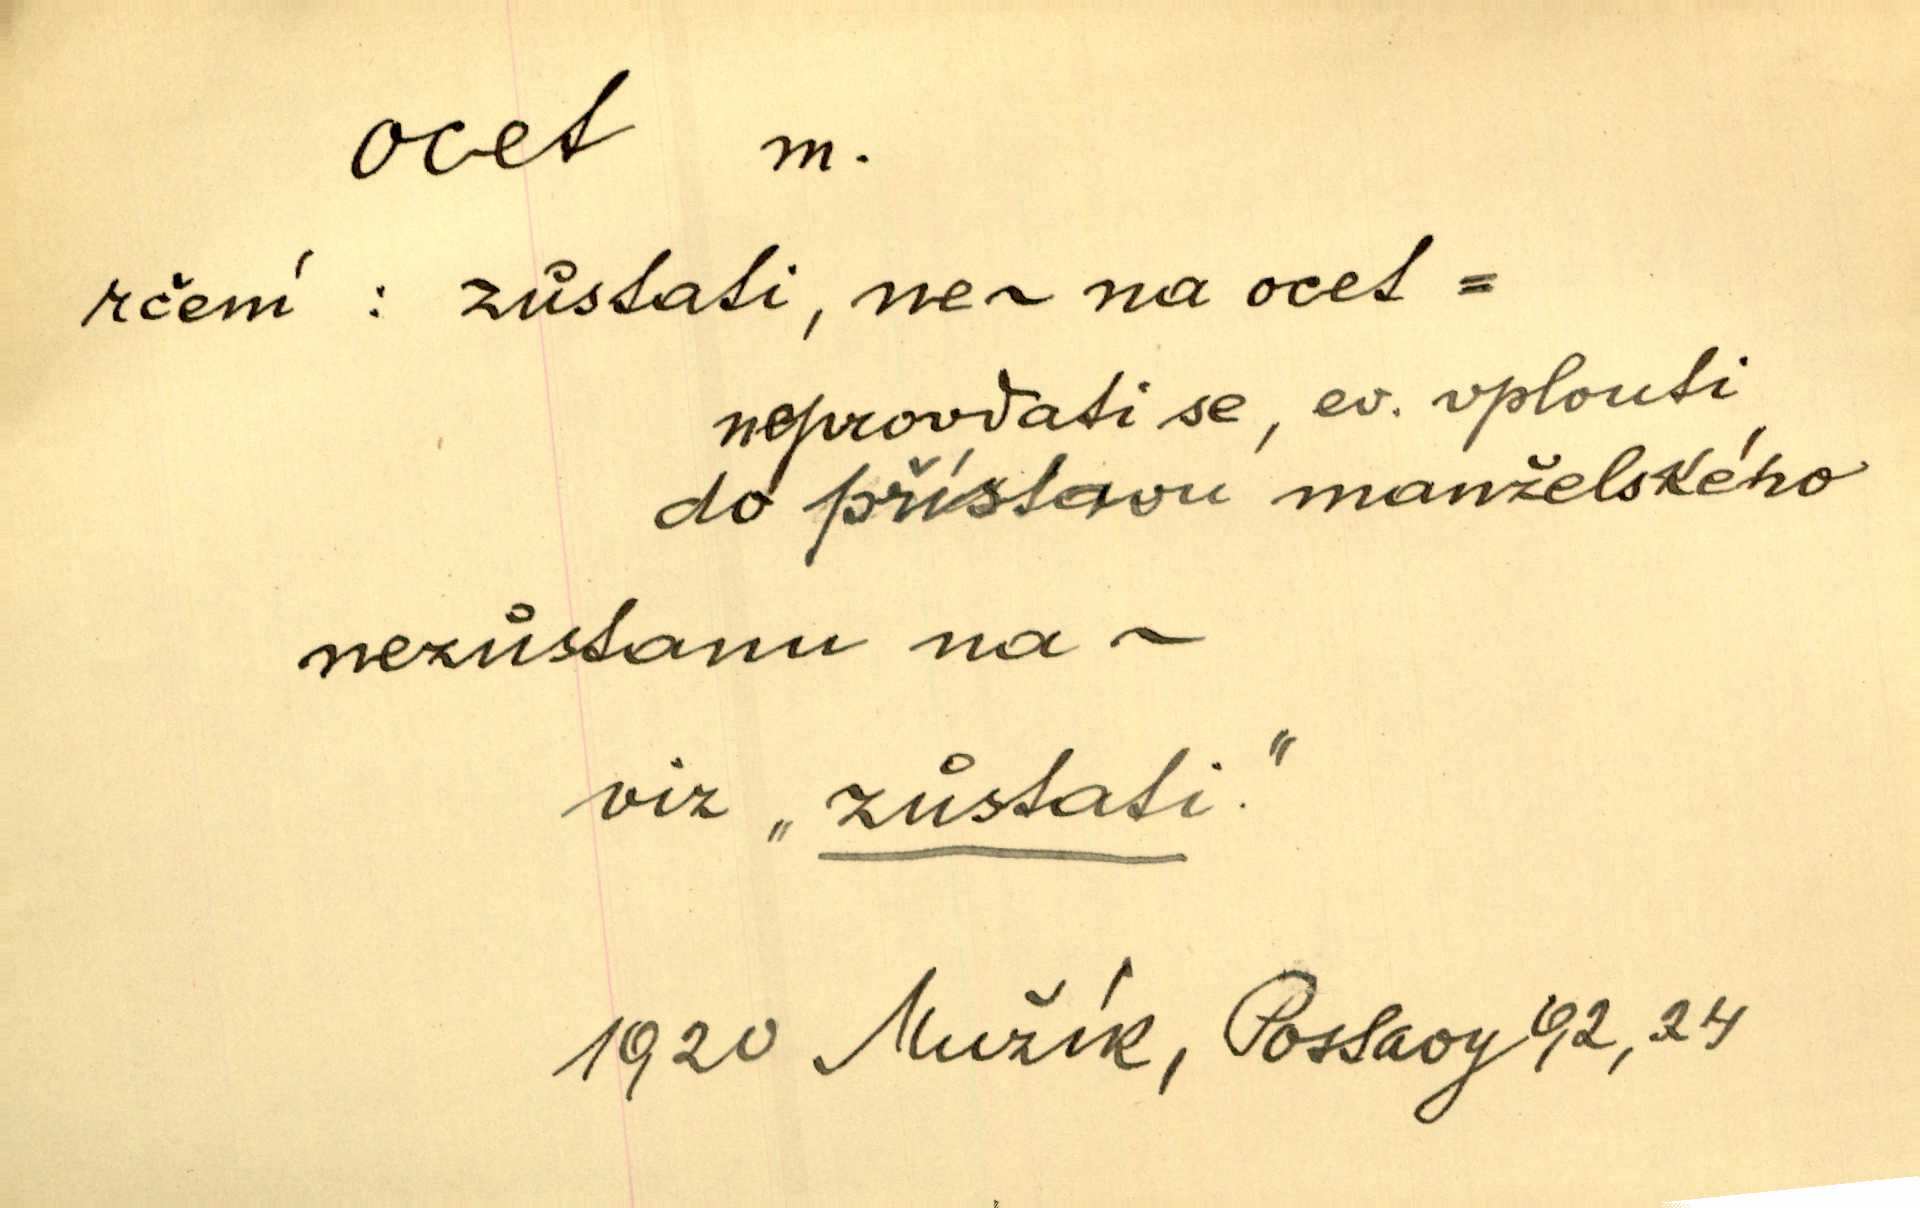 ocet m.
rčení : zůstati, ne~ na ocet =
neprovdati se, ev. vplouti
do přístavu manželského
nezůstanu na ~
viz „zůstati."
1920 Mužík, Postavy 92, 24